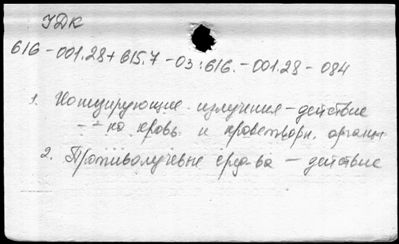 УДК
616-001.28+615.7-03:616.-001.28-084
1. Ионизирующие излучения - действие
- " - на кровь и кроветворн. органы
2. Противолучевые средства - действие